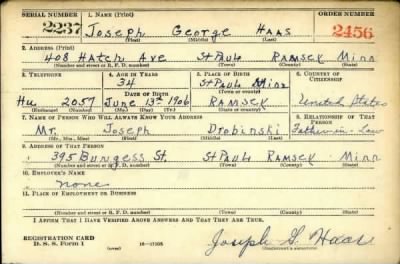 SERIAL NUMBER 1. NAME (Print) ORDER NUMBER
2237 Joseph George Haas 2456
(First) (Middle) (Last)
2. ADDRESS (Print)
408 Hatch Ave St Paul Ramsey Minn
(Number and street or R. F. D. number) (Town) (County) (State)
3. TELEPHONE 4. AGE IN YEARS 5. PLACE OF BIRTH 6. COUNTRY OF CITIZENSHIP
34 St Paul Minn
DATE OF BIRTH (Town or county)
Hu 2057 June 13th 1906 Ramsey United States
(Exchange) (Number) (Mo.) (Day) (Yr.) (State or country)
7. NAME OF PERSON WHO WILL ALWAYS KNOW YOUR ADDRESS 8. RELATIONSHIP OF THAT PERSON
Mr. Joseph Drobinski Father-in-Law
(Mr., Mrs., Miss) (First) (Middle) (Last)
9. ADDRESS OF THAT PERSON
395 Burgess St. St Paul Ramsey Minn
(Number and street or R. F. D. number) (Town) (County) (State)
10. EMPLOYER'S NAME
none
11. PLACE OF EMPLOYMENT OR BUSINESS
(Number and street or R. F. D. number) (Town) (County) (State)
I AFFIRM THAT I HAVE VERIFIED ABOVE ANSWERS AND THAT THEY ARE TRUE.
REGISTRATION CARD
D. S. S. Form 1 Joseph G. Haas
(Registrant's signature)